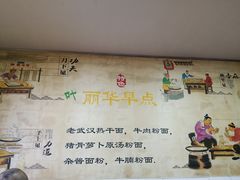 功夫
叶 丽华早点
老武汉热干面，牛肉粉面，
猪骨萝卜原汤粉面，
杂酱面粉，牛腩粉面.